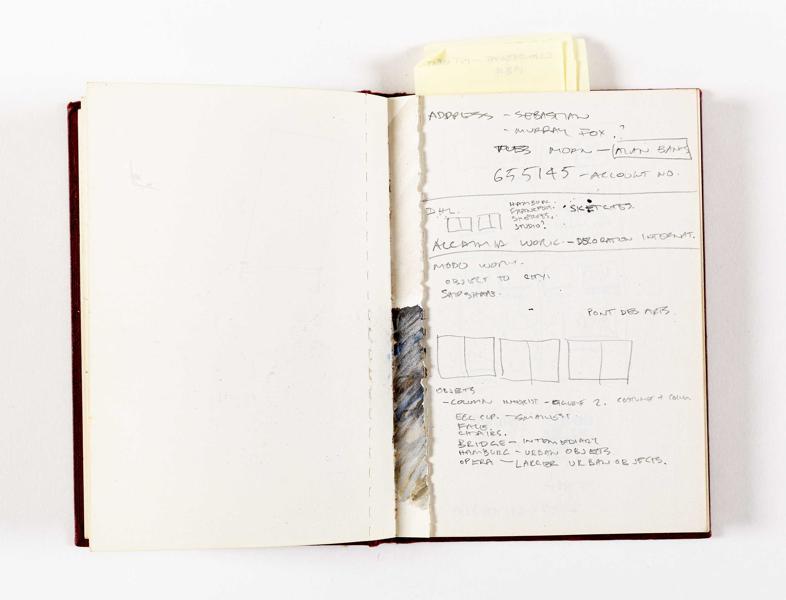 ADDRESS - SEBASTIAN
- MURRAY FOX.?
TUES MORN - ALAN BANK
655145 - ACCOUNT NO.
DHL.
HAMBURG.
SKETCHES.
STUDIO?
SKETCHES.
WORK - DECORATION INTERNAT.
MODO WORK.
OBJECT TO CITY.
PONT DES ARTS.
OBJETS
- COLUMN 2. COSTUME +
EGG CUP. - SMALLEST
FACE.
CHAIRS.
BRIDGE - INTERMEDIARY
HAMBURG - URBAN OBJETS
OPERA - LARGER URBAN OBJETS.